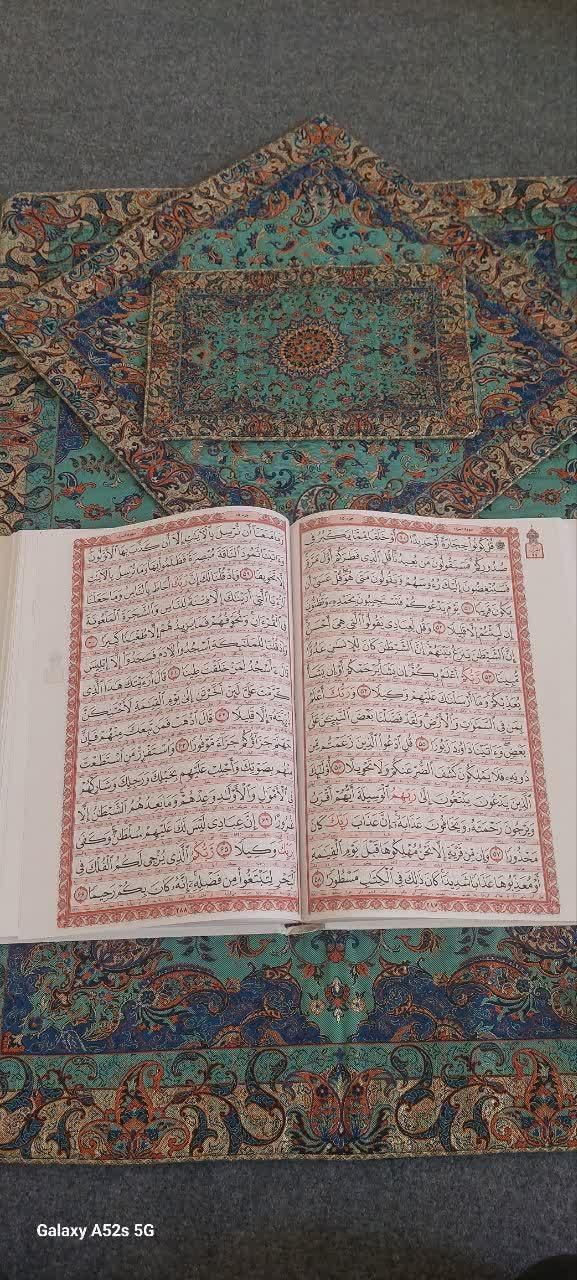 ۞ قُلْ كُونُوا۟ حِجَارَةً أَوْ حَدِيدًا ٥٠ أَوْ خَلْقًا مِّمَّا يَكْبُرُ فِى
صُدُورِكُمْ فَسَيَقُولُونَ مَن يُعِيدُنَا قُلِ ٱلَّذِى فَطَرَكُمْ أَوَّلَ مَرَّةٍ
فَسَيُنْغِضُونَ إِلَيْكَ رُءُوسَهُمْ وَيَقُولُونَ مَتَىٰ هُوَ قُلْ عَسَىٰ أَن
يَكُونَ قَرِيبًا ٥١ يَوْمَ يَدْعُوكُمْ فَتَسْتَجِيبُونَ بِحَمْدِهِۦ وَتَظُنُّونَ
إِن لَّبِثْتُمْ إِلَّا قَلِيلًا ٥٢ وَقُل لِّعِبَادِى يَقُولُوا۟ ٱلَّتِى هِىَ أَحْسَنُ
إِنَّ ٱلشَّيْطَٰنَ يَنزَغُ بَيْنَهُمْ إِنَّ ٱلشَّيْطَٰنَ كَانَ لِلْإِنسَٰنِ عَدُوًّا
مُّبِينًا ٥٣ رَّبُّكُمْ أَعْلَمُ بِكُمْ إِن يَشَأْ يَرْحَمْكُمْ أَوْ إِن يَشَأْ
يُعَذِّبْكُمْ وَمَآ أَرْسَلْنَٰكَ عَلَيْهِمْ وَكِيلًا ٥٤ وَرَبُّكَ أَعْلَمُ
بِمَن فِى ٱلسَّمَٰوَٰتِ وَٱلْأَرْضِ وَلَقَدْ فَضَّلْنَا بَعْضَ ٱلنَّبِيِّۦنَ عَلَىٰ
بَعْضٍ وَءَاتَيْنَا دَاوُۥدَ زَبُورًا ٥٥ قُلِ ٱدْعُوا۟ ٱلَّذِينَ زَعَمْتُم مِّن
دُونِهِۦ فَلَا يَمْلِكُونَ كَشْفَ ٱلضُّرِّ عَنكُمْ وَلَا تَحْوِيلًا ٥٦ أُو۟لَٰٓئِكَ
ٱلَّذِينَ يَدْعُونَ يَبْتَغُونَ إِلَىٰ رَبِّهِمُ ٱلْوَسِيلَةَ أَيُّهُمْ أَقْرَبُ
وَيَرْجُونَ رَحْمَتَهُۥ وَيَخَافُونَ عَذَابَهُۥٓ إِنَّ عَذَابَ رَبِّكَ كَانَ
مَحْذُورًا ٥٧ وَإِن مِّن قَرْيَةٍ إِلَّا نَحْنُ مُهْلِكُوهَا قَبْلَ يَوْمِ ٱلْقِيَٰمَةِ
أَوْ مُعَذِّبُوهَا عَذَابًا شَدِيدًا كَانَ ذَٰلِكَ فِى ٱلْكِتَٰبِ مَسْطُورًا ٥٨
٢٨٧
وَمَا مَنَعَنَآ أَن نُّرْسِلَ بِٱلْءَايَٰتِ إِلَّآ أَن كَذَّبَ بِهَا ٱلْأَوَّلُونَ
وَءَاتَيْنَا ثَمُودَ ٱلنَّاقَةَ مُبْصِرَةً فَظَلَمُوا۟ بِهَا وَمَا نُرْسِلُ بِٱلْءَايَٰتِ
إِلَّا تَخْوِيفًا ٥٩ وَإِذْ قُلْنَا لَكَ إِنَّ رَبَّكَ أَحَاطَ بِٱلنَّاسِ وَمَا جَعَلْنَا
ٱلرُّءْيَا ٱلَّتِىٓ أَرَيْنَٰكَ إِلَّا فِتْنَةً لِّلنَّاسِ وَٱلشَّجَرَةَ ٱلْمَلْعُونَةَ
فِى ٱلْقُرْءَانِ وَنُخَوِّفُهُمْ فَمَا يَزِيدُهُمْ إِلَّا طُغْيَٰنًا كَبِيرًا ٦٠
وَإِذْ قُلْنَا لِلْمَلَٰٓئِكَةِ ٱسْجُدُوا۟ لِءَادَمَ فَسَجَدُوٓا۟ إِلَّآ إِبْلِيسَ
قَالَ ءَأَسْجُدُ لِمَنْ خَلَقْتَ طِينًا ٦١ قَالَ أَرَءَيْتَكَ هَٰذَا ٱلَّذِى
كَرَّمْتَ عَلَىَّ لَئِنْ أَخَّرْتَنِ إِلَىٰ يَوْمِ ٱلْقِيَٰمَةِ لَأَحْتَنِكَنَّ
ذُرِّيَّتَهُۥٓ إِلَّا قَلِيلًا ٦٢ قَالَ ٱذْهَبْ فَمَن تَبِعَكَ مِنْهُمْ فَإِنَّ
جَهَنَّمَ جَزَآؤُكُمْ جَزَآءً مَّوْفُورًا ٦٣ وَٱسْتَفْزِزْ مَنِ ٱسْتَطَعْتَ
مِنْهُم بِصَوْتِكَ وَأَجْلِبْ عَلَيْهِم بِخَيْلِكَ وَرَجِلِكَ وَشَارِكْهُمْ
فِى ٱلْأَمْوَٰلِ وَٱلْأَوْلَٰدِ وَعِدْهُمْ وَمَا يَعِدُهُمُ ٱلشَّيْطَٰنُ إِلَّا
غُرُورًا ٦٤ إِنَّ عِبَادِى لَيْسَ لَكَ عَلَيْهِمْ سُلْطَٰنٌ وَكَفَىٰ
بِرَبِّكَ وَكِيلًا ٦٥ رَّبُّكُمُ ٱلَّذِى يُزْجِى لَكُمُ ٱلْفُلْكَ فِى
ٱلْبَحْرِ لِتَبْتَغُوا۟ مِن فَضْلِهِۦٓ إِنَّهُۥ كَانَ بِكُمْ رَحِيمًا ٦٦
٢٨٨
Galaxy A52s 5G